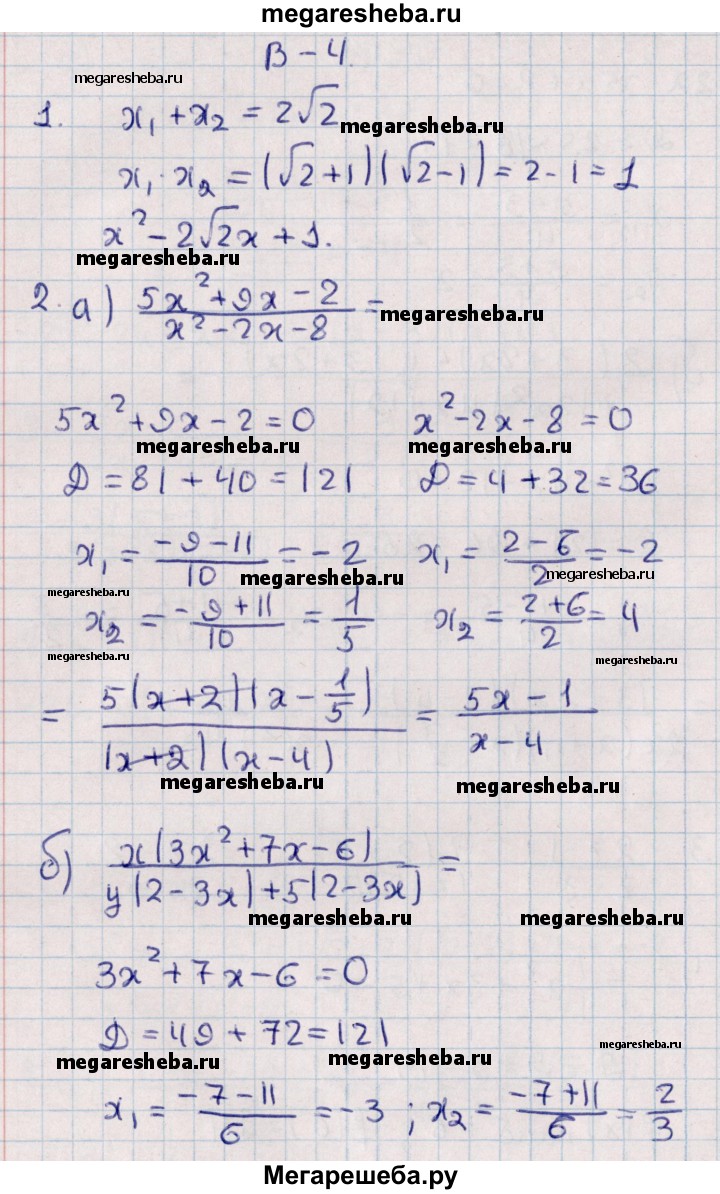 megaresheba.ru
В – 4.
megaresheba.ru
1. x₁ + x₂ = 2√2
megaresheba.ru
x₁ · x₂ = (√2+1)(√2-1) = 2-1 = 1
x² - 2√2x + 1.
megaresheba.ru
2. а) (5x² + 9x - 2)/(x² - 2x - 8) =
megaresheba.ru
5x² + 9x - 2 = 0    x² - 2x - 8 = 0
megaresheba.ru    megaresheba.ru
Д = 81 + 40 = 121    Д = 4 + 32 = 36
x₁ = (-9-11)/10 = -2    x₁ = (2-6)/2 = -2
megaresheba.ru    megaresheba.ru    megaresheba.ru
x₂ = (-9+11)/10 = 1/5    x₂ = (2+6)/2 = 4
megaresheba.ru    megaresheba.ru
= (5(x+2)(x - 1/5))/((x+2)(x-4)) = (5x - 1)/(x - 4)
megaresheba.ru    megaresheba.ru
б) (x(3x² + 7x - 6))/(y(2-3x) + 5(2-3x)) =
megaresheba.ru    megaresheba.ru
3x² + 7x - 6 = 0
Д = 49 + 72 = 121
megaresheba.ru    megaresheba.ru    megaresheba.ru
x₁ = (-7-11)/6 = -3 ; x₂ = (-7+11)/6 = 2/3
Мегарешеба.ру